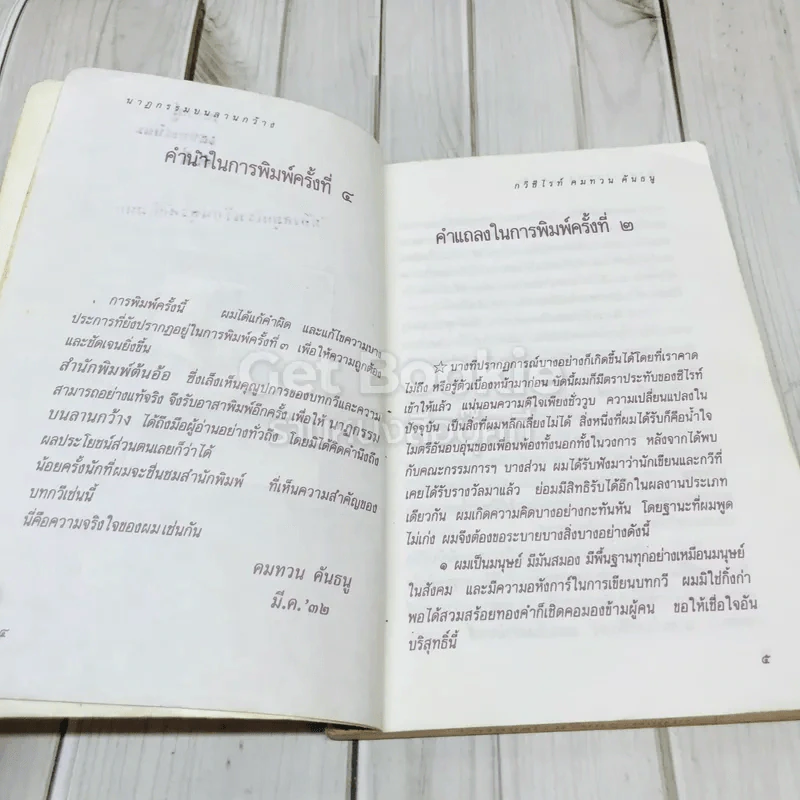 นาฏกรรมบนลานกว้าง
คำนำในการพิมพ์ครั้งที่ ๔
การพิมพ์ครั้งนี้ ผมได้แก้คำผิด และแก้ไขความบาง
ประการที่ยังปรากฏอยู่ในการพิมพ์ครั้งที่ ๓ เพื่อให้ความถูกต้อง
และชัดเจนยิ่งขึ้น
สำนักพิมพ์ต้นอ้อ ซึ่งเล็งเห็นคุณูปการของบทกวีและความ
สามารถอย่างแท้จริง จึงรับอาสาพิมพ์อีกครั้ง เพื่อให้ นาฏกรรม
บนลานกว้าง ได้ถึงมือผู้อ่านอย่างทั่วถึง โดยมิได้คิดคำนึงถึง
ผลประโยชน์ส่วนตนเลยก็ว่าได้
น้อยครั้งนักที่ผมจะชื่นชมสำนักพิมพ์ ที่เห็นความสำคัญของ
บทกวีเช่นนี้
นี่คือความจริงใจของผมเช่นกัน
คมทวน คันธนู
มี.ค.'๓๒
๔
กวีซีไรท์ คมทวน คันธนู
คำแถลงในการพิมพ์ครั้งที่ ๒
☆ บางทีปรากฏการณ์บางอย่างก็เกิดขึ้นได้โดยที่เราคาด
ไม่ถึง หรือรู้ตัวเบื้องหน้ามาก่อน บัดนี้ผมก็มีตราประทับของซีไรท์
เข้าให้แล้ว แน่นอนความดีใจเพียงชั่ววูบ ความเปลี่ยนแปลงใน
ปัจจุบัน เป็นสิ่งที่ผมหลีกเลี่ยงไม่ได้ สิ่งหนึ่งที่ผมได้รับก็คือน้ำใจ
ไมตรีอันอบอุ่นของเพื่อนพ้องทั้งนอกทั้งในวงการ หลังจากได้พบ
กับคณะกรรมการๆ บางส่วน ผมได้รับฟังมาว่านักเขียนและกวีที่
เคยได้รับรางวัลมาแล้ว ย่อมมีสิทธิรับได้อีกในผลงานประเภท
เดียวกัน ผมเกิดความคิดบางอย่างกะทันหัน โดยฐานะที่ผมพูด
ไม่เก่ง ผมจึงต้องขอระบายบางสิ่งบางอย่างดังนี้
๑ ผมเป็นมนุษย์ มีมันสมอง มีพื้นฐานทุกอย่างเหมือนมนุษย์
ในสังคม และมีความอหังการ์ในการเขียนบทกวี ผมมิใช่กิ้งก่า
พอได้สวมสร้อยทองคำก็เชิดคอมองข้ามผู้คน ขอให้เชื่อใจอัน
บริสุทธิ์นี้
๕
Get Bookie